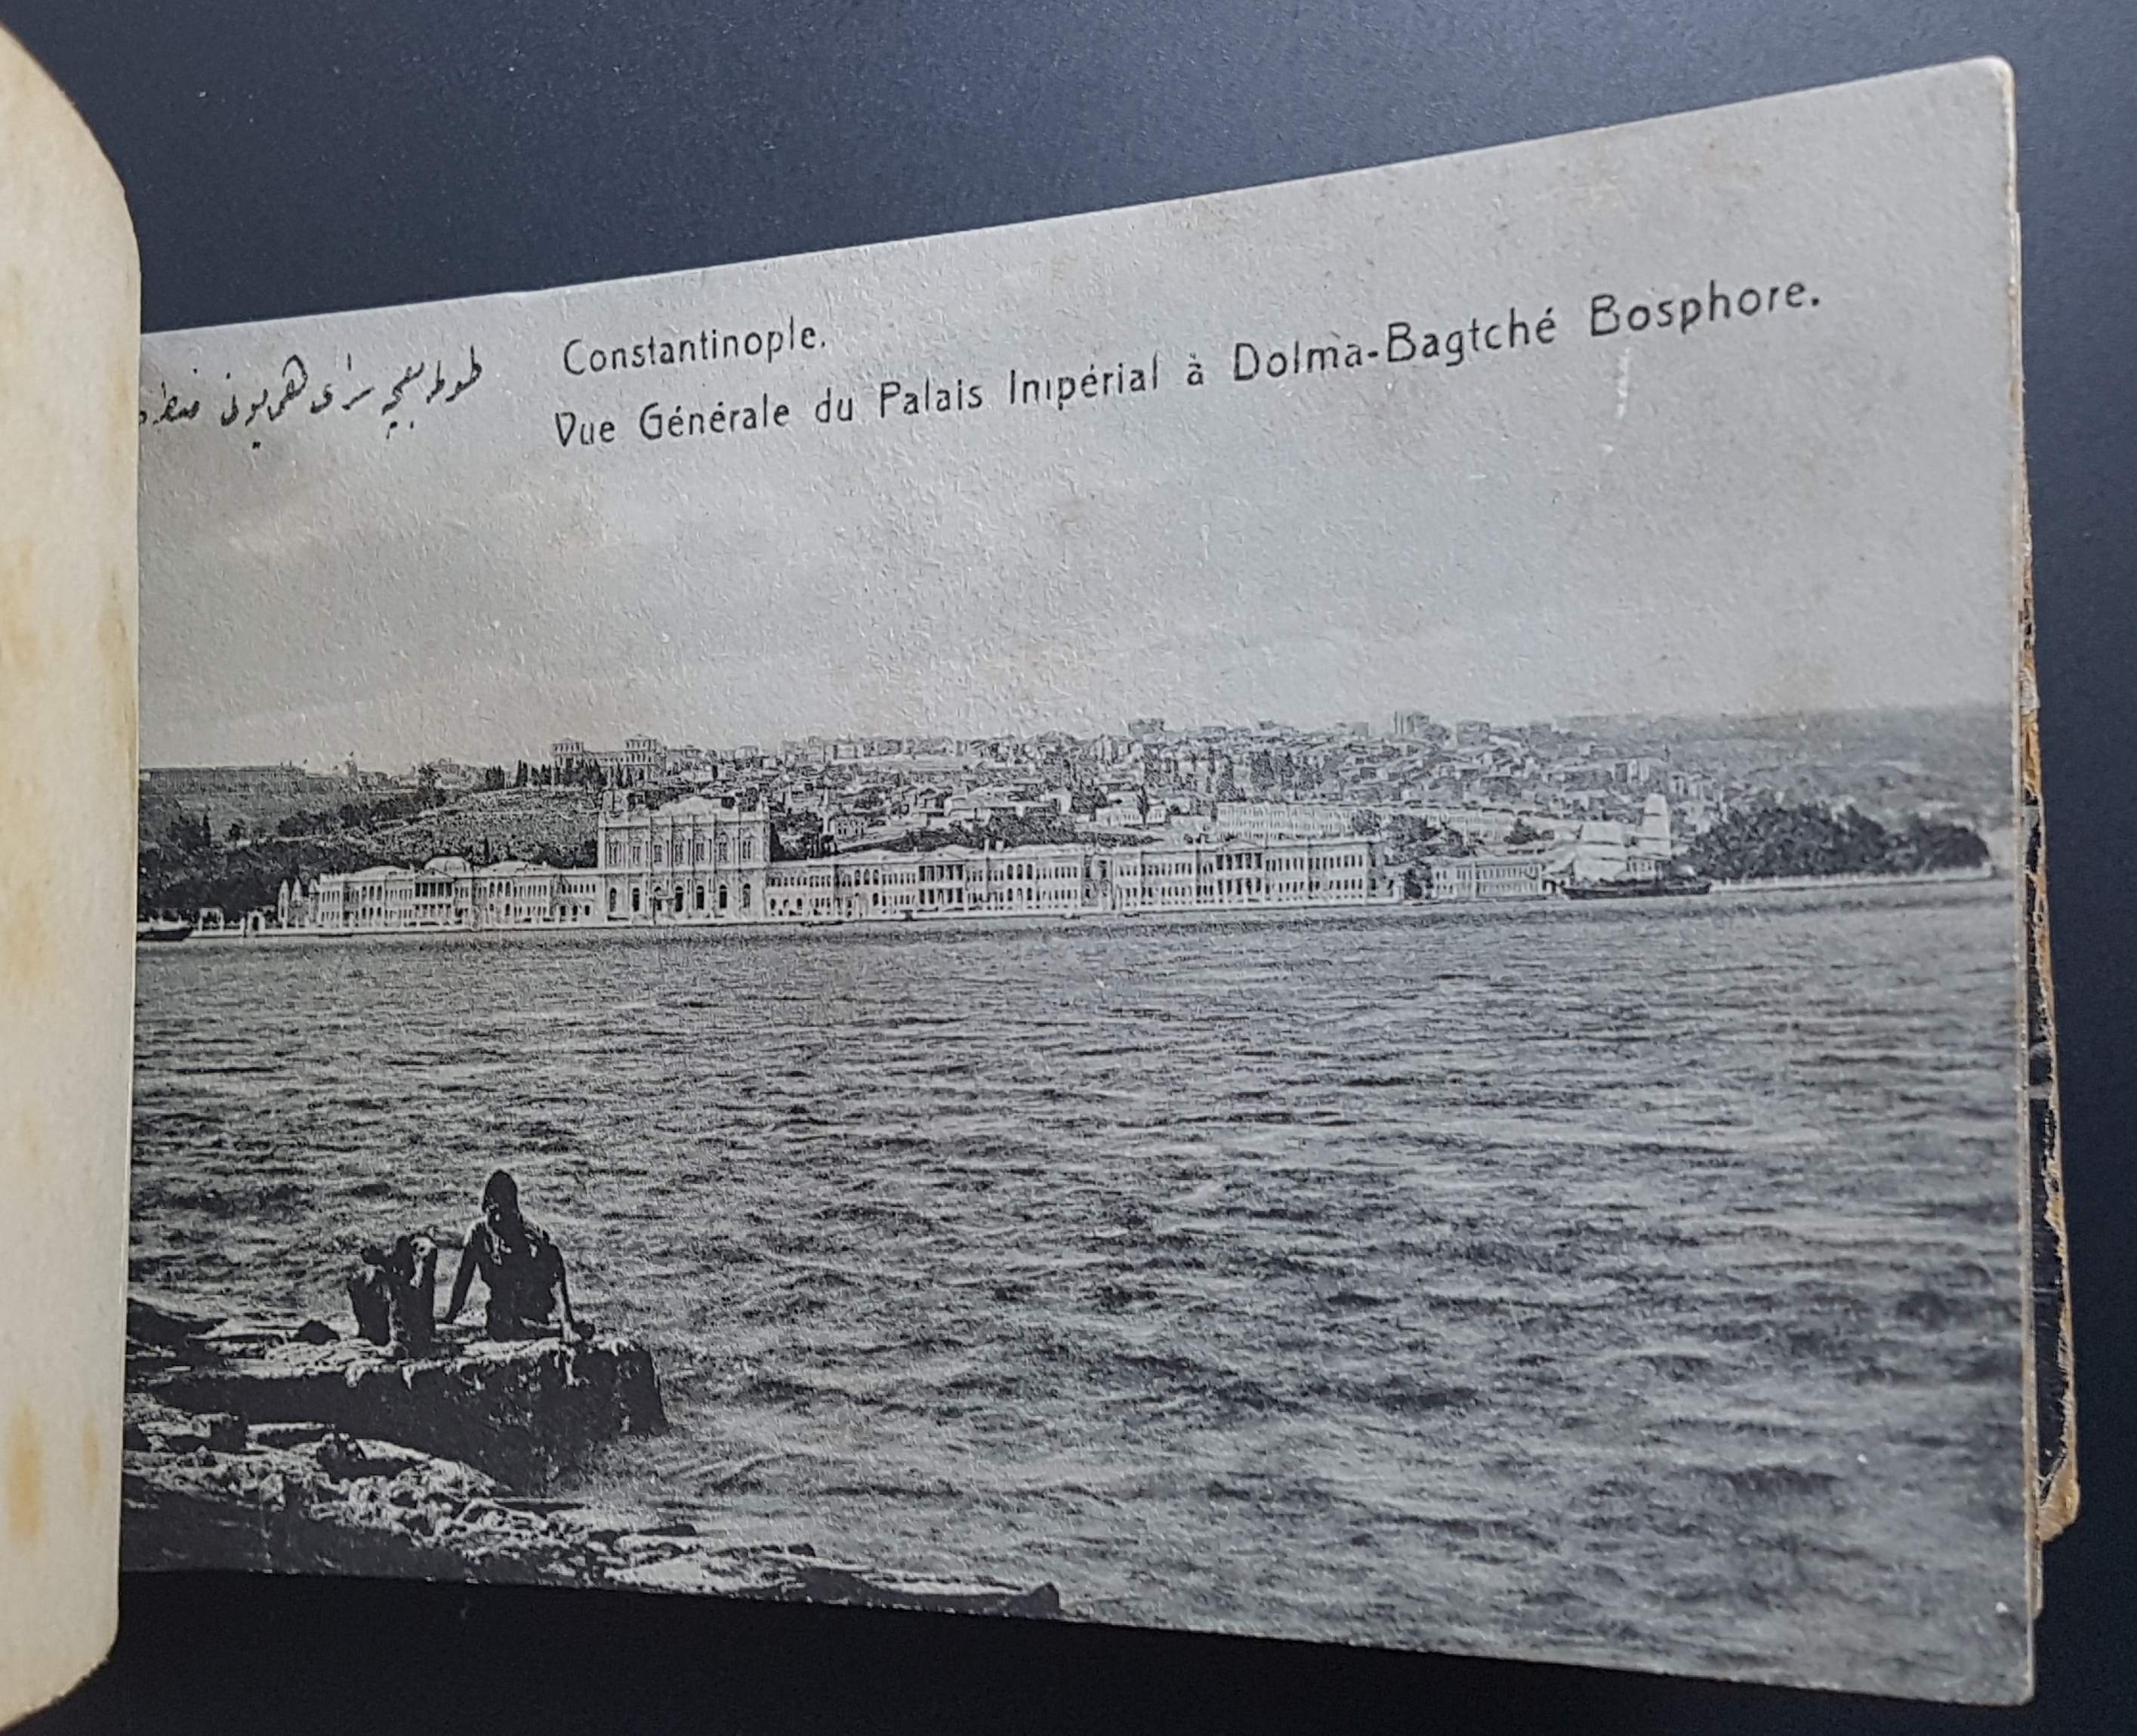 طولمه بغچه سرای همایونی
Constantinople.
Vue Générale du Palais Impérial à Dolma-Bagtché Bosphore.